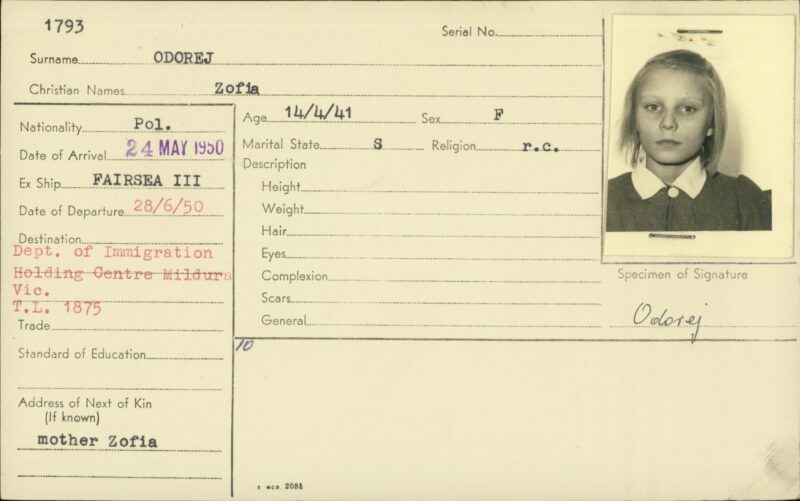 1793
Serial No.
Surname ODOREJ
Christian Names Zofia
Nationality Pol.
Date of Arrival 24 MAY 1950
Ex Ship FAIRSEA III
Date of Departure 28/6/50
Destination
Dept. of Immigration
Holding Centre Mildura
Vic.
T.L. 1875
Trade
Standard of Education
Address of Next of Kin
(If known)
mother Zofia
Age 14/4/41 Sex F
Marital State S Religion r.c.
Description
Height
Weight
Hair
Eyes
Complexion
Scars
General
10
Specimen of Signature
Odorej